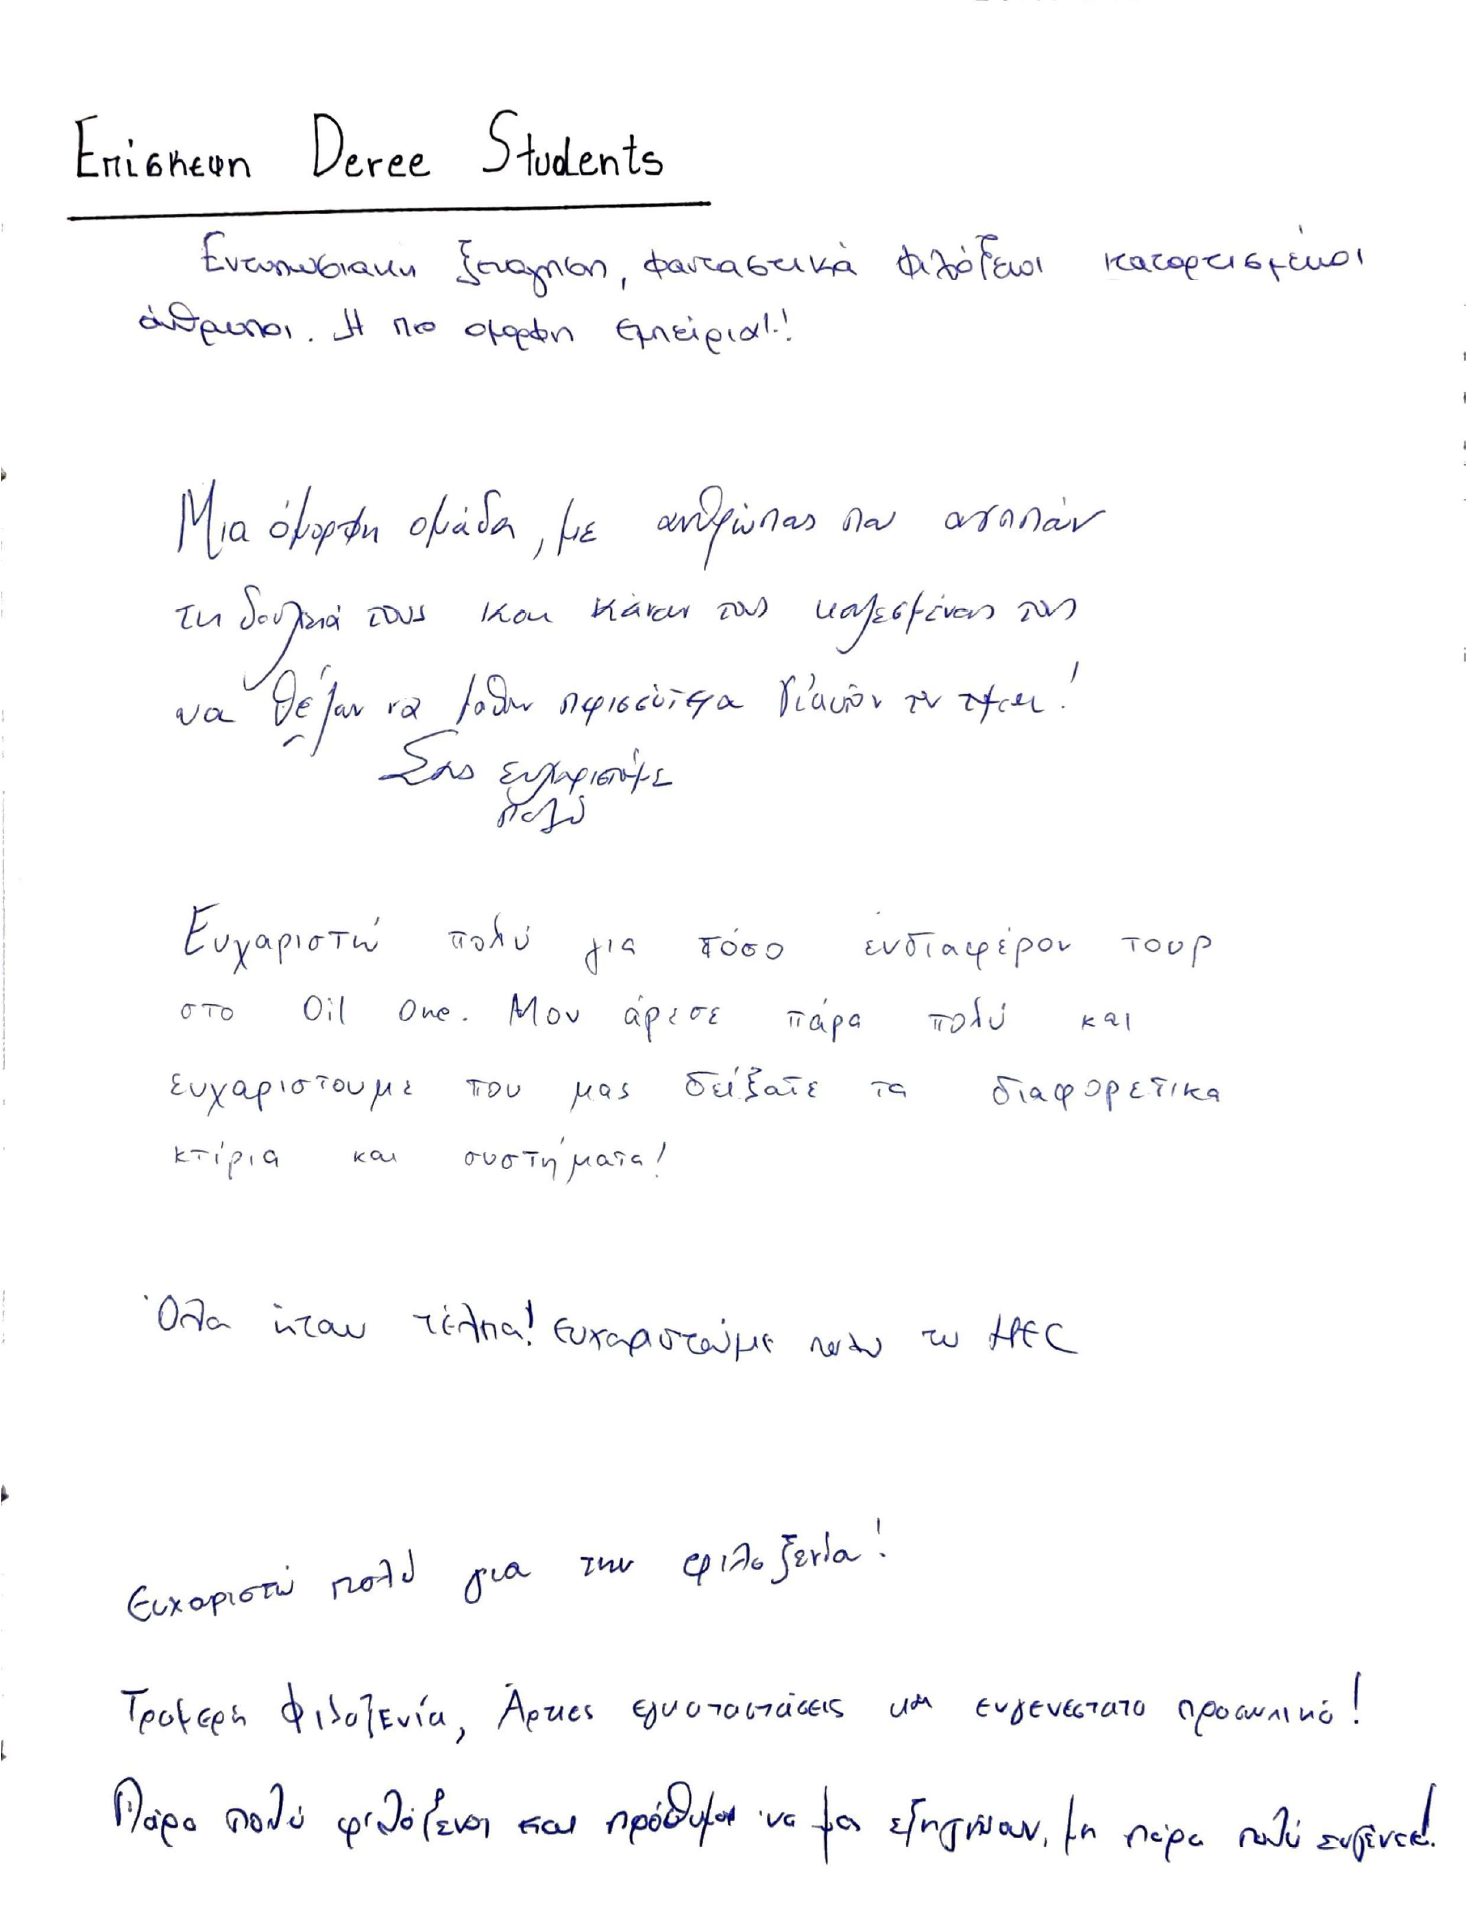 Επίσκεψη Deree Students
Εντυπωσιακη ξεναγηση, φανταστικά φιλόξενοι καταρτισμένοι
άνθρωποι. Η πιο ομορφη εμπείρια!!
Μια όμορφη ομάδα, με ανθρώπους που αγαπάν
τη δουλειά τους και κάναν τους καλεσμένους τους
να θέλαν να μαθουν περισσότερα γι'αυτόν τον
Σας ευχαριστούμε
πολύ
Ευχαριστώ πολύ για τόσο ένδιαφέρον τουρ
στο Oil One. Μου άρεσε πάρα πολύ και
ευχαριστουμε που μας δείξατε τα διαφορετικα
κτίρια και συστήματα!
Όλα ήταν τέλεια! Ευχαριστούμε πολυ το HEC
Ευχαριστώ πολύ για την φιλοξενία!
Τρομερη φιλοξενία, Άρτιες εγκαταστάσεις και ευγενεστατο προσωπικό!
Πάρα πολύ φιλόξενοι και πρόθυμοι να μας εξηγησουν, πάρα πολύ ευγενεις!